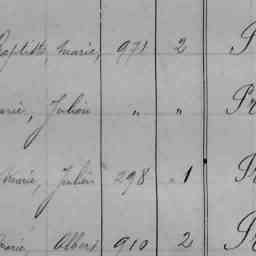 Baptiste, Marie, 971 2 P
Marie, Julien " " Pr
Marie, Julien 298 1 Pr
Marie, Albert 910 2 P